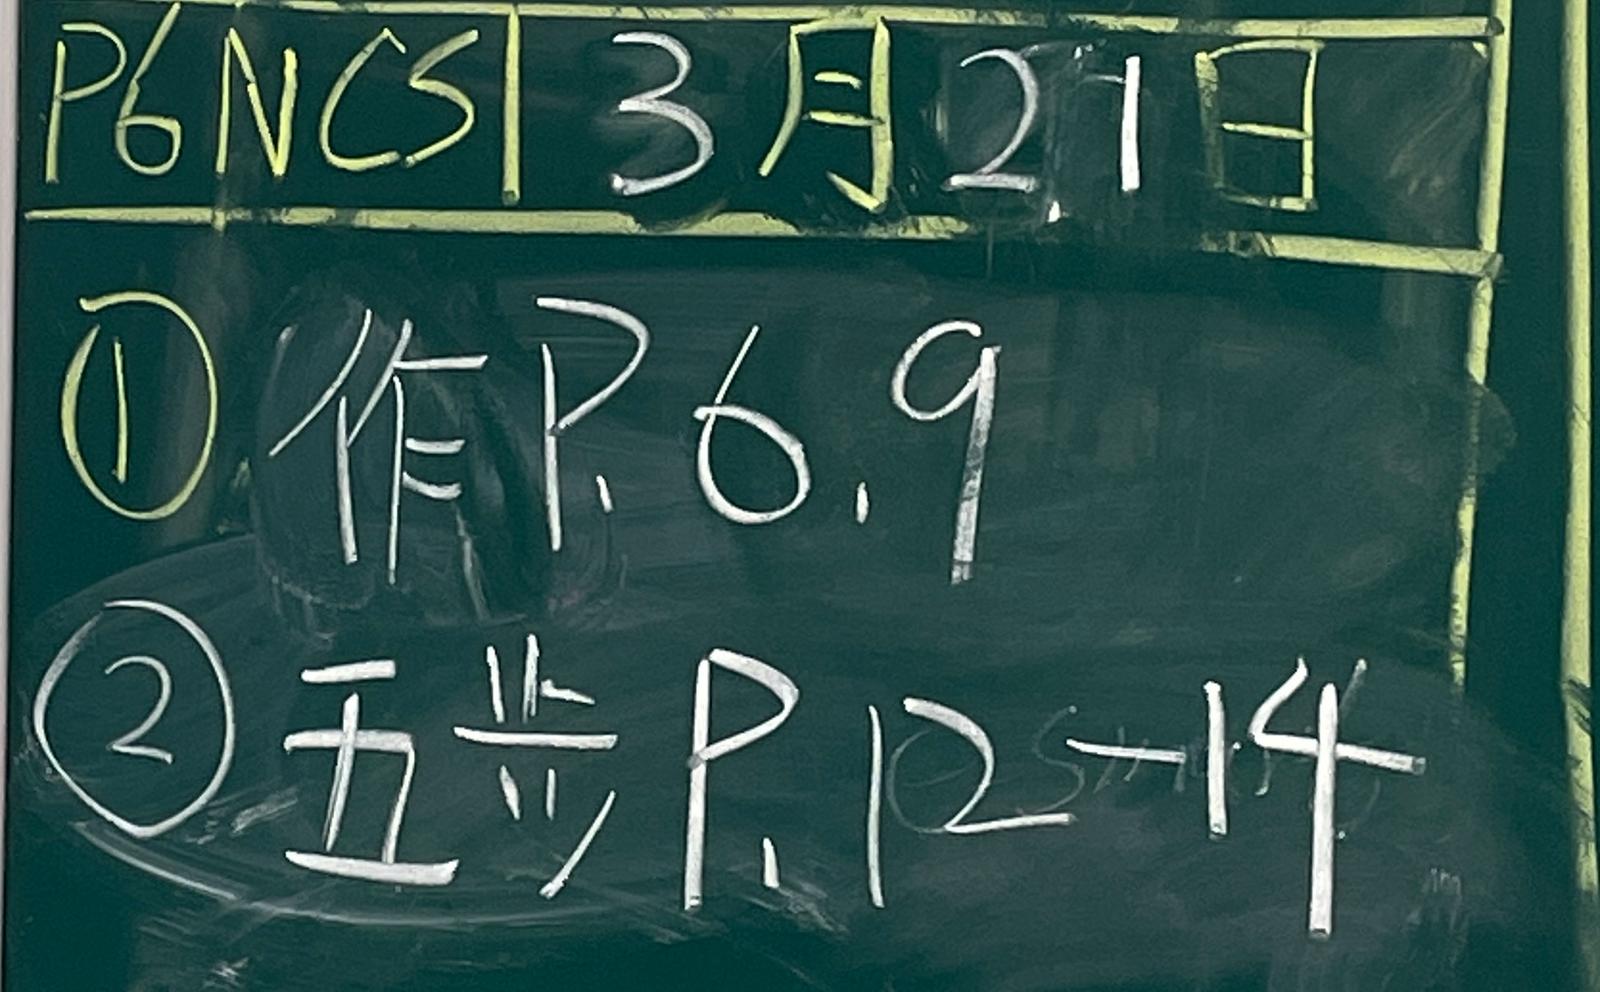 P6NCS 3月21日
① 作P.6.9
② 五步P.12-14